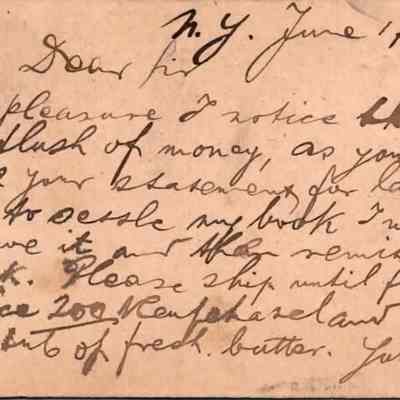 N. Y. June 1
Dear Sir
pleasure I notice
flush of money, as you
your statement for la
to sessle my book I w
ve it and then remis
k. Please ship until f
ce 200 Neufchasel and
of fresh. butter. You